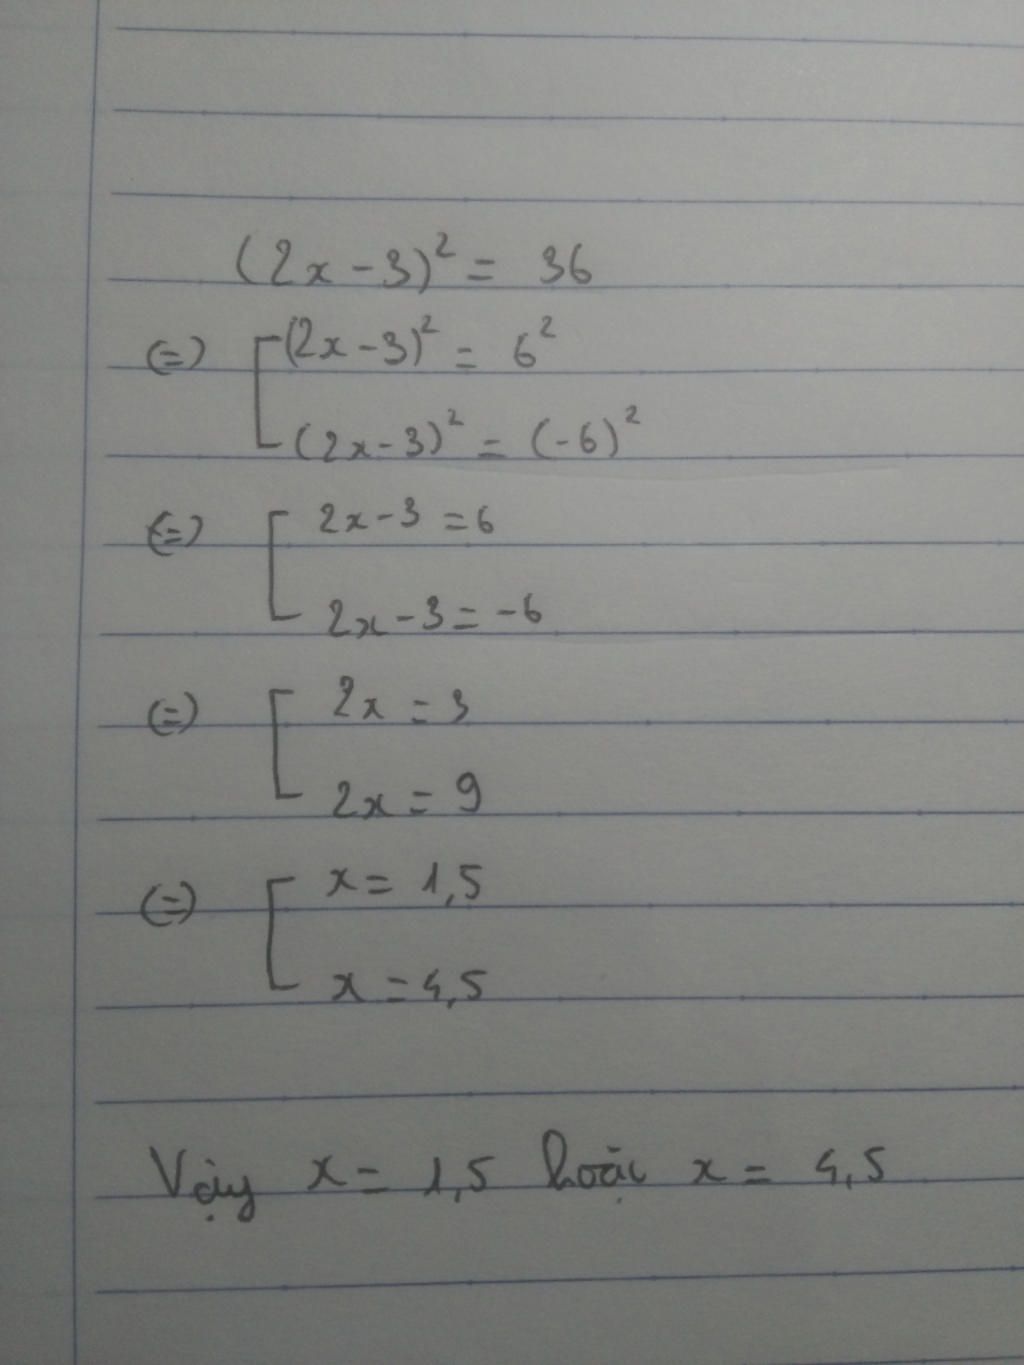 (2x-3)² = 36
(=) [ (2x-3)² = 6²
(2x-3)² = (-6)²
(=) [ 2x-3 = 6
2x-3 = -6
(=) [ 2x = 3
2x = 9
(=) [ x = 1,5
x = 4,5
Vậy x = 1,5 hoặc x = 4,5